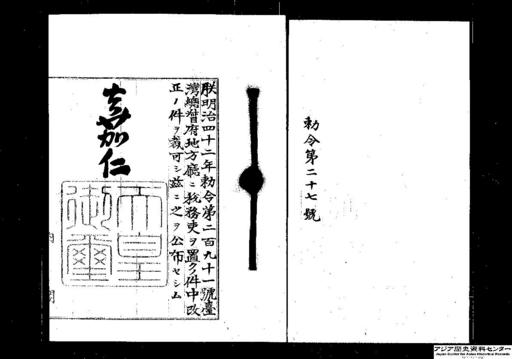 勅令第二十七號
朕明治四十二年勅令第二百九十一號臺
灣總督府地方廳ニ税務吏ヲ置ク件中改
正ノ件ヲ裁可シ茲ニ之ヲ公布セシム
嘉仁
天皇
御璽
内閣
アジア歴史資料センター
Japan Center for Asian Historical Records